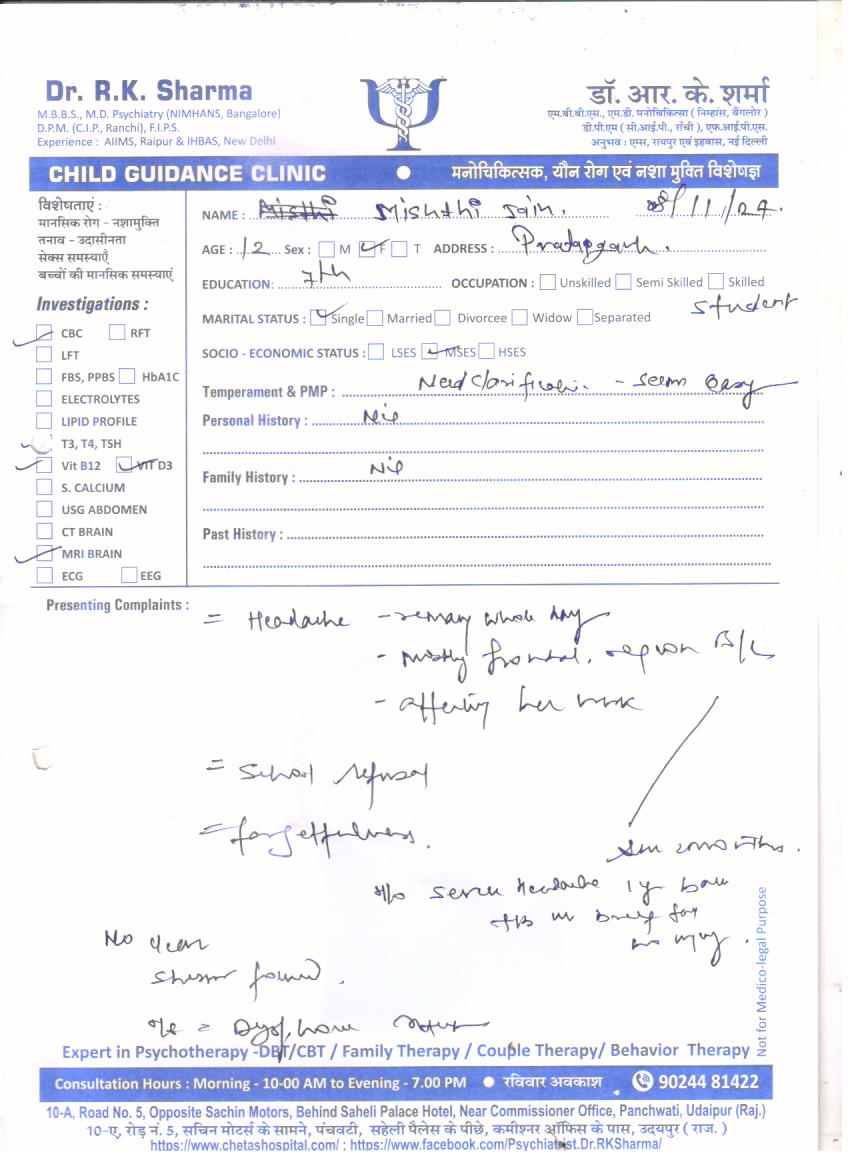 Dr. R.K. Sharma
M.B.B.S., M.D. Psychiatry (NIMHANS, Bangalore)
D.P.M. (C.I.P., Ranchi), F.I.P.S.
Experience : AIIMS, Raipur & IHBAS, New Delhi
डॉ. आर. के. शर्मा
एम.बी.बी.एस., एम.डी. मनोचिकित्सा ( निम्हांस, बैंगलोर )
डी.पी.एम ( सी.आई.पी., राँची ), एफ.आई.पी.एस.
अनुभव : एम्स, रायपुर एवं इहबास, नई दिल्ली
CHILD GUIDANCE CLINIC ● मनोचिकित्सक, यौन रोग एवं नशा मुक्ति विशेषज्ञ
विशेषताएं :
मानसिक रोग - नशामुक्ति
तनाव - उदासीनता
सेक्स समस्याएँ
बच्चों की मानसिक समस्याएं
Investigations :
CBC RFT
LFT
FBS, PPBS HbA1C
ELECTROLYTES
LIPID PROFILE
T3, T4, TSH
Vit B12 VIT D3
S. CALCIUM
USG ABDOMEN
CT BRAIN
MRI BRAIN
ECG EEG
NAME : Mishthi Jain. /11/24.
AGE : 12 Sex : M F T ADDRESS : Pratapgarh.
EDUCATION: 7th OCCUPATION : Unskilled Semi Skilled Skilled
student
MARITAL STATUS : Single Married Divorcee Widow Separated
SOCIO - ECONOMIC STATUS : LSES MSES HSES
Temperament & PMP : Need clarification - seems easy
Personal History : Nil
Family History : Nil
Past History :
Presenting Complaints :
= Headache - whole day
- mostly frontal region B/L
- affecting her work
= School refusal
= forgetfulness.
2 months.
H/o severe headache 1 yr back
No clear
stressor found.
Not for Medico-legal Purpose
Expert in Psychotherapy -DBT/CBT / Family Therapy / Couple Therapy/ Behavior Therapy
Consultation Hours : Morning - 10-00 AM to Evening - 7.00 PM ● रविवार अवकाश 90244 81422
10-A, Road No. 5, Opposite Sachin Motors, Behind Saheli Palace Hotel, Near Commissioner Office, Panchwati, Udaipur (Raj.)
10-ए, रोड़ नं. 5, सचिन मोटर्स के सामने, पंचवटी, सहेली पैलेस के पीछे, कमीश्नर ऑफिस के पास, उदयपुर ( राज. )
https://www.chetashospital.com/ : https://www.facebook.com/Psychiatrist.Dr.RKSharma/